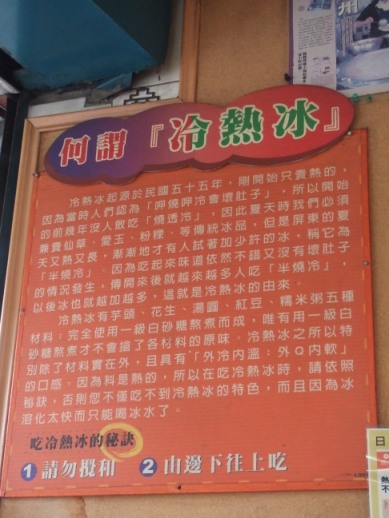 何謂『冷熱冰』
冷熱冰起源於民國五十五年，剛開始只賣熱的，
因為當時人們認為「呷燒呷冷會壞肚子」，所以開始
的前幾年沒人敢吃「燒透冷」，因此夏天時我們必須
兼賣仙草、愛玉、粉粿、等傳統冰品，但是屏東的夏
天又熱又長，漸漸地才有人試著加少許的冰，稱它為
「半燒冷」。因為吃起來味道依然不錯又沒有壞肚子
的情況發生，傳開來後就越來越多人吃「半燒冷」，
以後冰也就越加越多，這就是冷熱冰的由來。
冷熱冰有芋頭、花生、湯圓、紅豆、糯米粥五種
材料：完全使用一級白砂糖熬煮而成，唯有用一級白
砂糖熬煮才不會搶了各材料的原味。冷熱冰之所以特
別除了材料實在外，且具有「外冷內溫；外Q內軟」
的口感，因為料是熱的，所以在吃冷熱冰時，請依照
秘訣，否則您不僅吃不到冷熱冰的特色，而且因為冰
溶化太快而只能喝冰水了。
吃冷熱冰的秘訣
1 請勿攪和 2 由邊下往上吃
州
日
熱
不